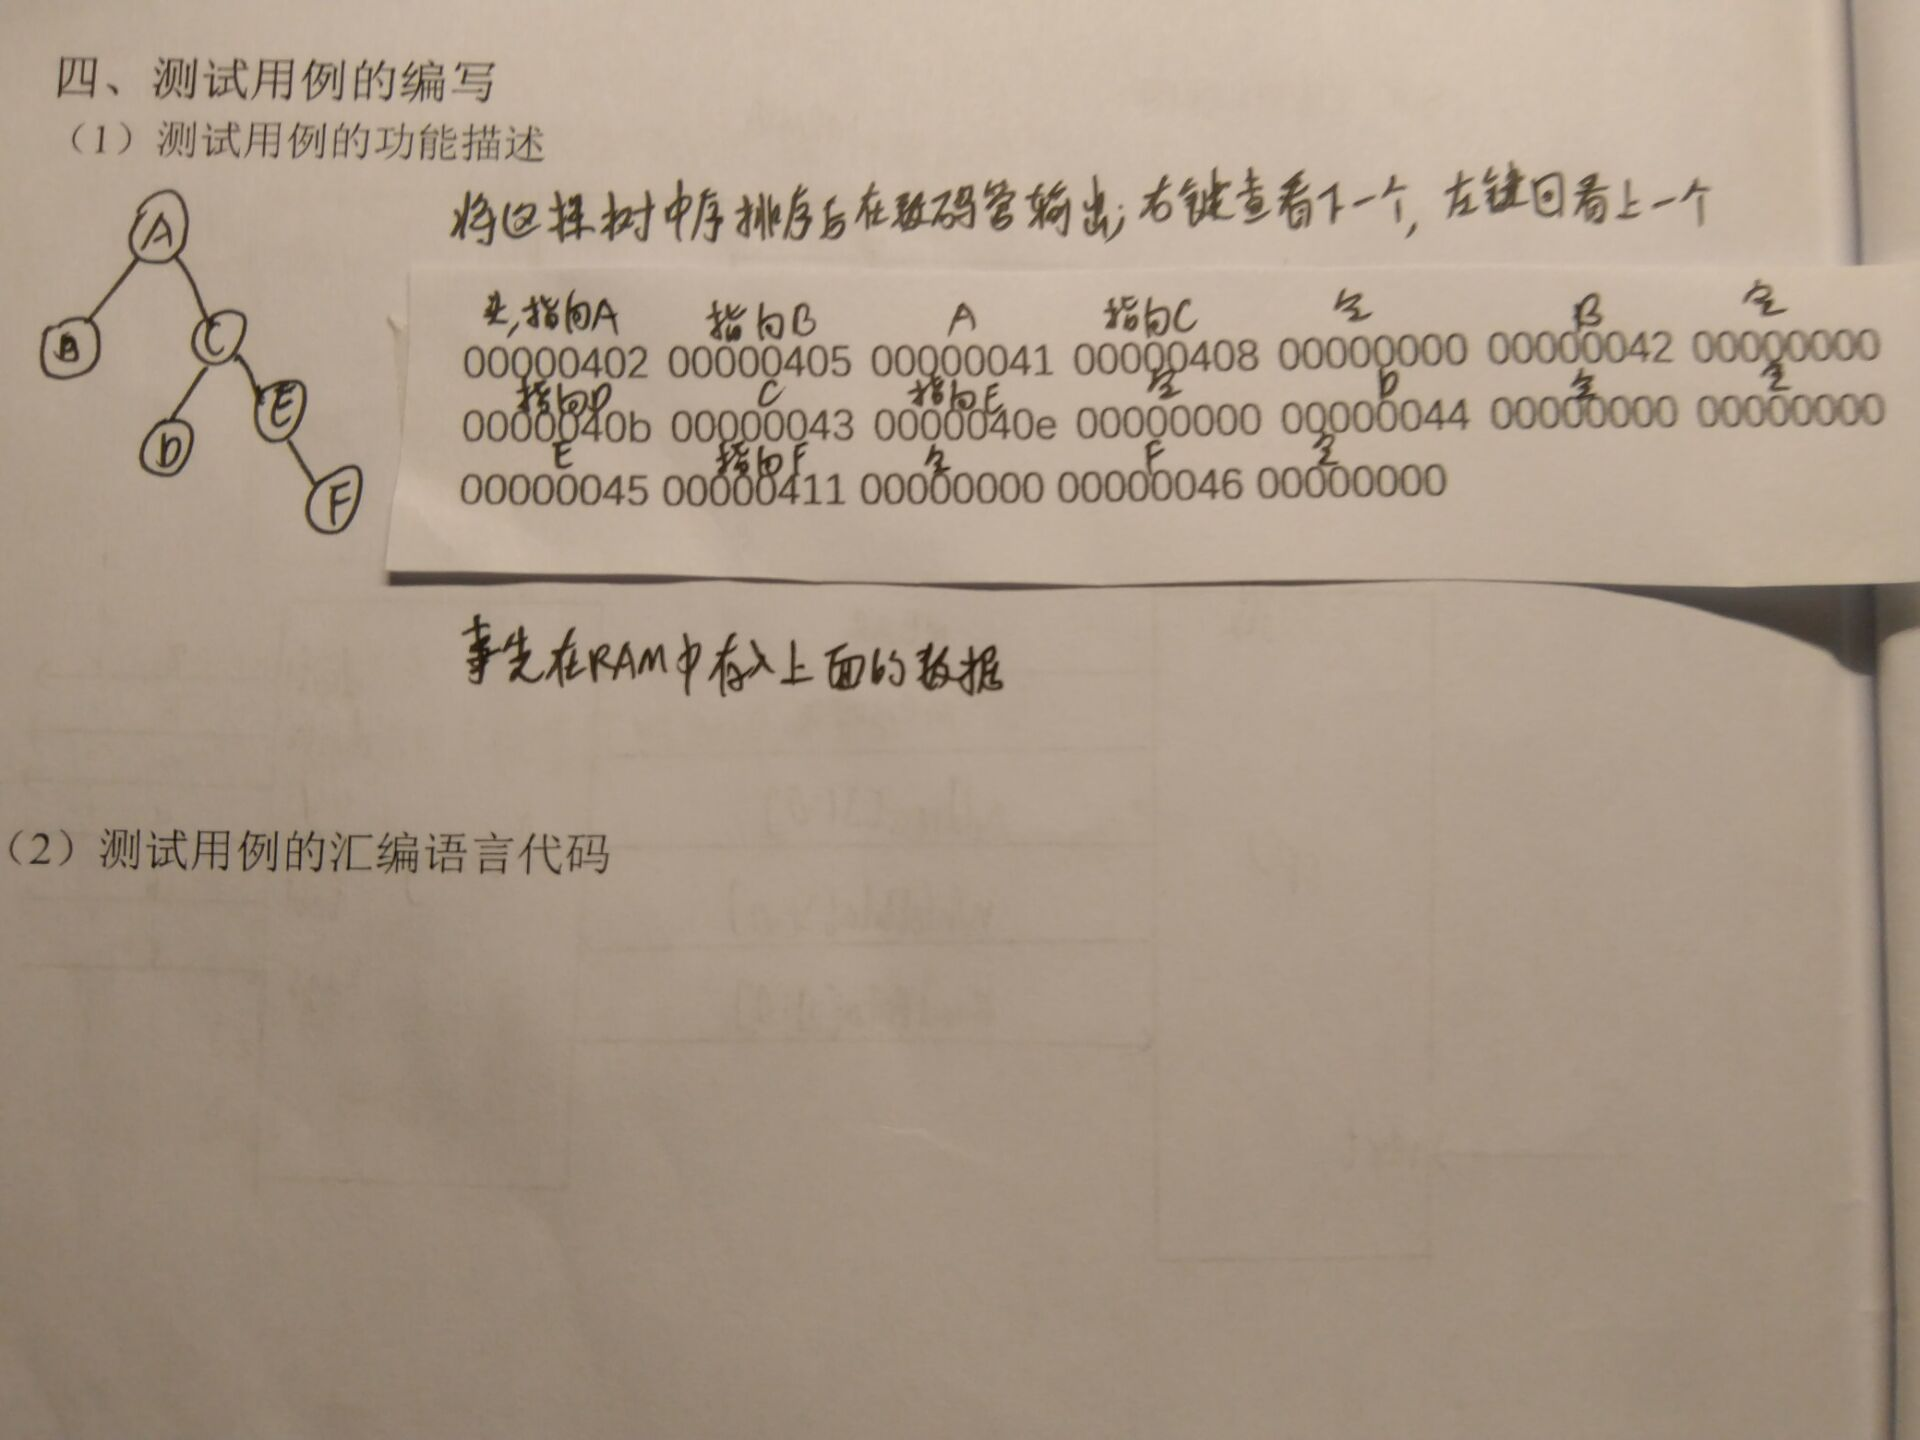 四、测试用例的编写
（1）测试用例的功能描述
将这棵树中序排序后在数码管输出;右键查看下一个,左键回看上一个
A
B
C
D
E
F
头,指向A 指向B A 指向C 空 B 空
00000402 00000405 00000041 00000408 00000000 00000042 00000000
指向D C 指向E 空 D 空 空
0000040b 00000043 0000040e 00000000 00000044 00000000 00000000
E 指向F 空 F 空
00000045 00000411 00000000 00000046 00000000
事先在RAM中存入上面的数据
（2）测试用例的汇编语言代码